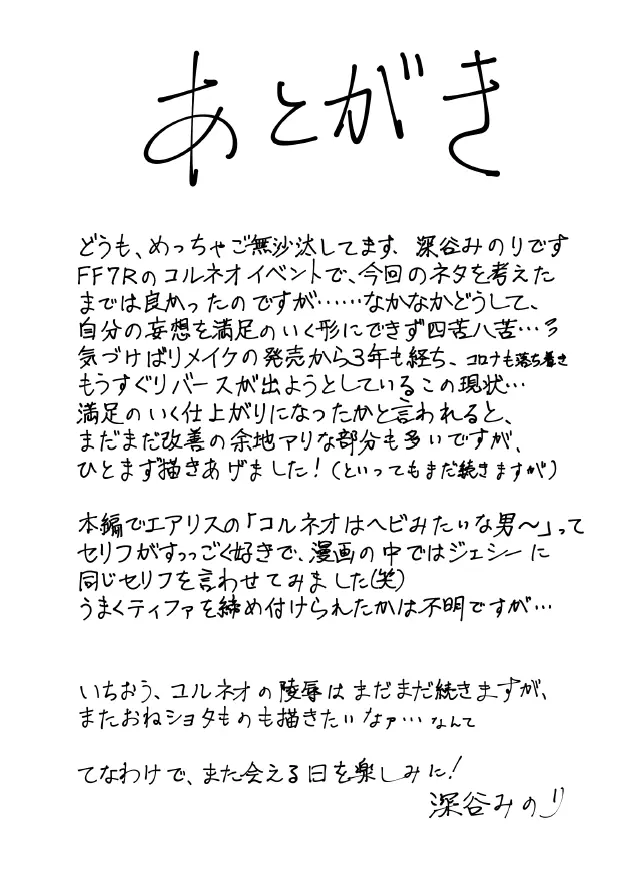 あとがき
どうも、めっちゃご無沙汰してます、深谷みのりです
FF7Rのコルネオイベントで、今回のネタを考えた
までは良かったのですが……なかなかどうして、
自分の妄想を満足のいく形にできず四苦八苦…
気づけばリメイクの発売から3年も経ち、コロナも落ち着き
もうすぐリバースが出ようとしているこの現状…
満足のいく仕上がりになったかと言われると、
まだまだ改善の余地アリな部分も多いですが、
ひとまず描きあげました!(といってもまだ続きますが)
本編でエアリスの「コルネオはヘビみたいな男〜」って
セリフがすっっごく好きで、漫画の中ではジェシーに
同じセリフを言わせてみました(笑)
うまくティファを締め付けられたかは不明ですが…
いちおう、コルネオの陵辱はまだまだ続きますが、
またおねショタものも描きたいなァ…なんて
てなわけで、また会える日を楽しみに!
深谷みのり